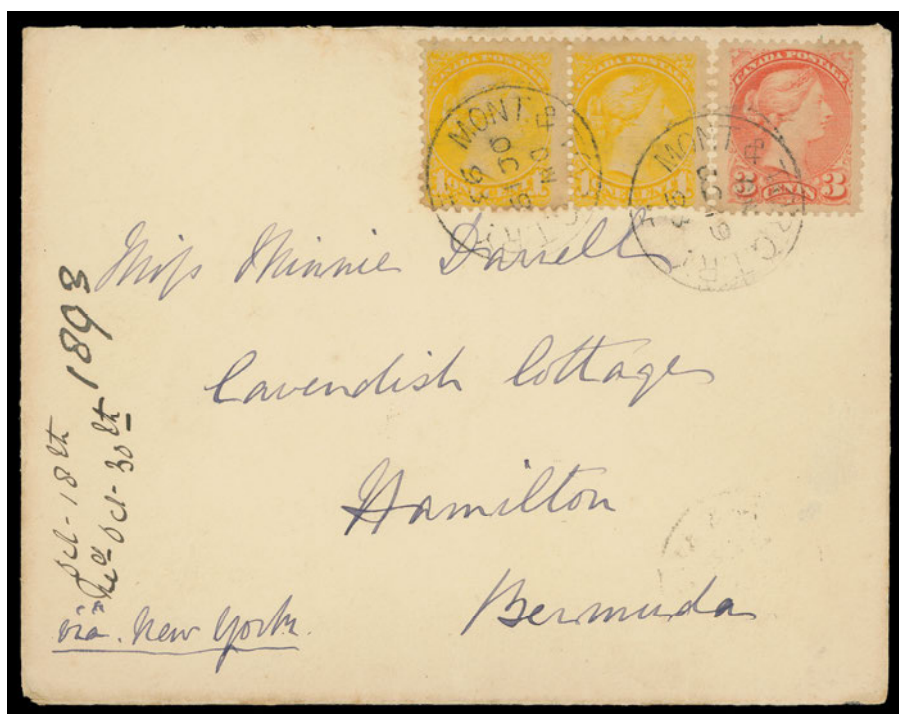 CANADA POSTAGE
1 ONE CENT 1
CANADA POSTAGE
1 ONE CENT 1
CANADA POSTAGE
3 CENTS 3
MONT. &
OC
93
G.T.R.
MONT. &
OC
93
G.T.R.
Miss Minnie Darrell
Cavendish Cottage
Hamilton
Bermuda
Oct-18th 1893
Recd Oct-30th
"via". New York.